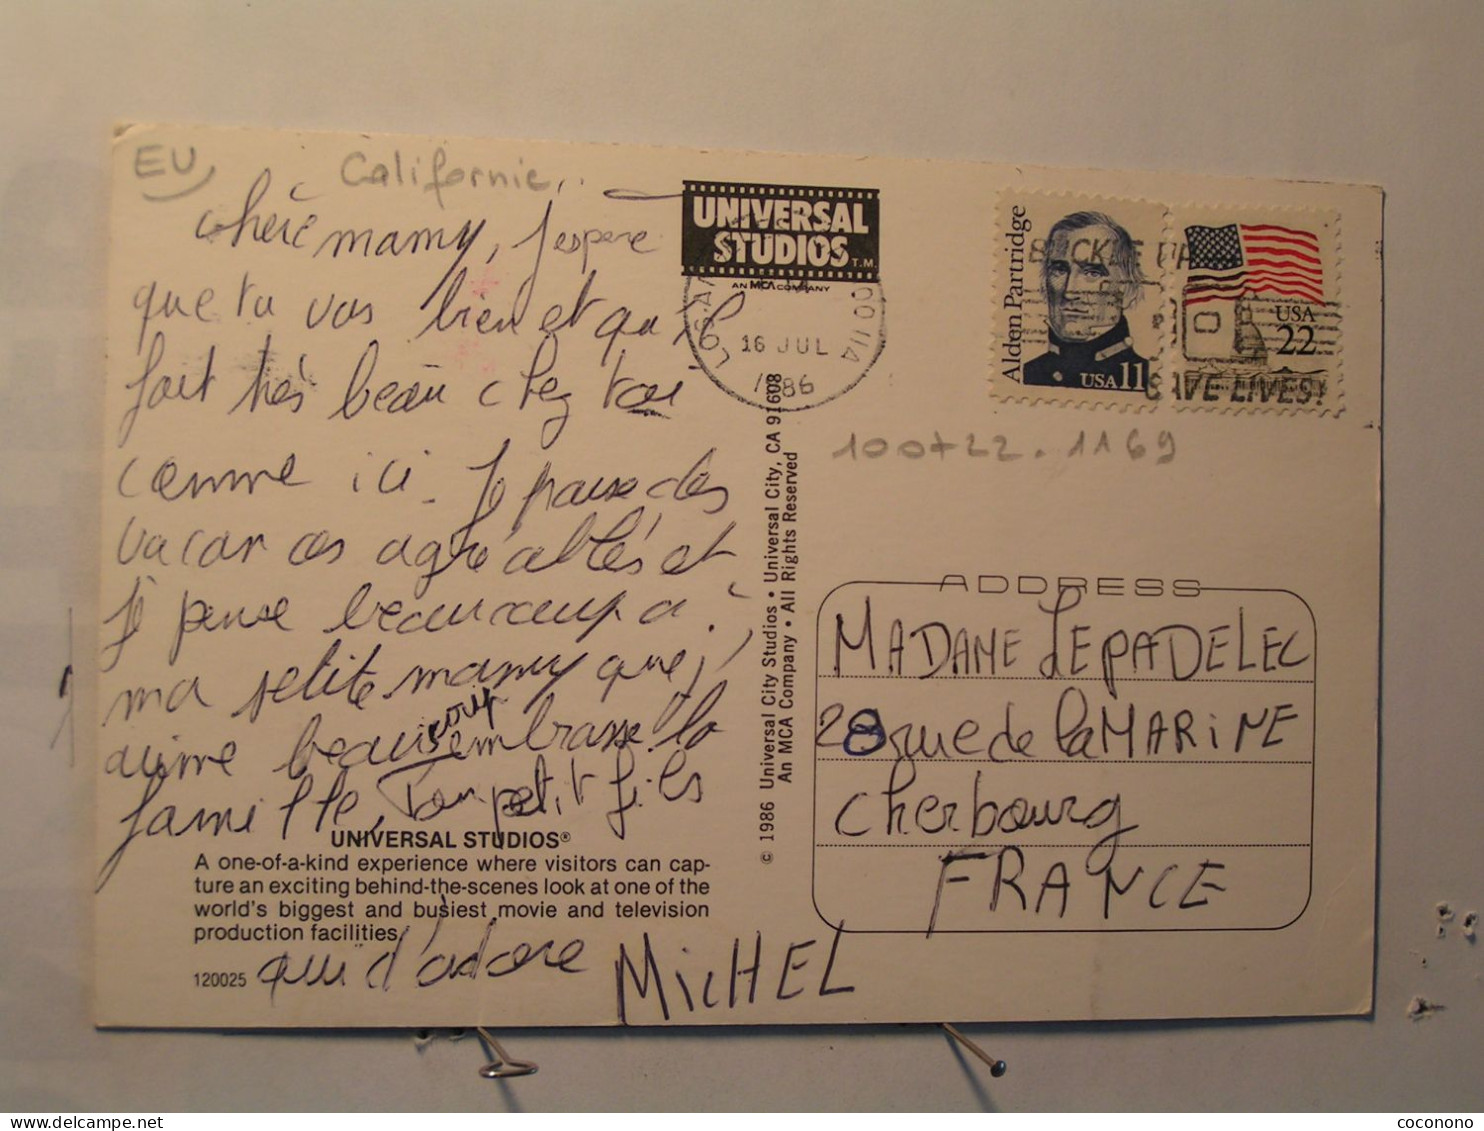 EU
Californie
chère mamy, j'espère
que tu vas bien et qu'il
fait très beau chez toi
comme ici. Je passe des
vacances agréables et
je pense beaucoup à
ma petite mamy que j'
aime beaucoup embrasse la
famille, Ton petit fils
qui t'adore MicHEL
UNIVERSAL STUDIOS®
A one-of-a-kind experience where visitors can cap-
ture an exciting behind-the-scenes look at one of the
world's biggest and busiest movie and television
production facilities.
120025
UNIVERSAL
STUDIOS T.M.
AN MCA COMPANY
16 JUL
1986
© 1986 Universal City Studios • Universal City, CA 91608
An MCA Company • All Rights Reserved
Alden Partridge
USA 11
USA
22
BUCKLE UP
SAVE LIVES!
100722.1169
ADDRESS
MADAME LEPADELEC
28 rue de la MARiNE
cherbourg
FRANCE
coconono